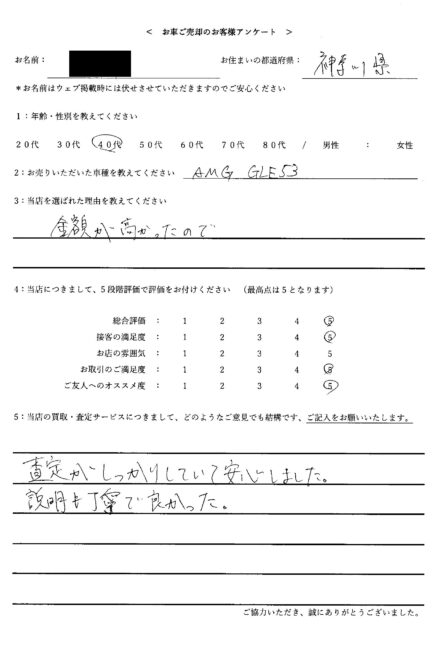 < お車ご売却のお客様アンケート >
お名前： お住まいの都道府県： 神奈川県
＊お名前はウェブ掲載時には伏せさせていただきますのでご安心ください
1：年齢・性別を教えてください
20代 30代 40代 50代 60代 70代 80代 / 男性 ： 女性
2：お売りいただいた車種を教えてください AMG GLE53
3：当店を選ばれた理由を教えてください
金額が高かったので
4：当店につきまして、5段階評価で評価をお付けください （最高点は5となります）
総合評価 ： 1 2 3 4 5
接客の満足度 ： 1 2 3 4 5
お店の雰囲気 ： 1 2 3 4 5
お取引のご満足度 ： 1 2 3 4 5
ご友人へのオススメ度 ： 1 2 3 4 5
5：当店の買取・査定サービスにつきまして、どのようなご意見でも結構です、ご記入をお願いいたします。
査定がしっかりしていて安心しました。
説明も丁寧で良かった。
ご協力いただき、誠にありがとうございました。